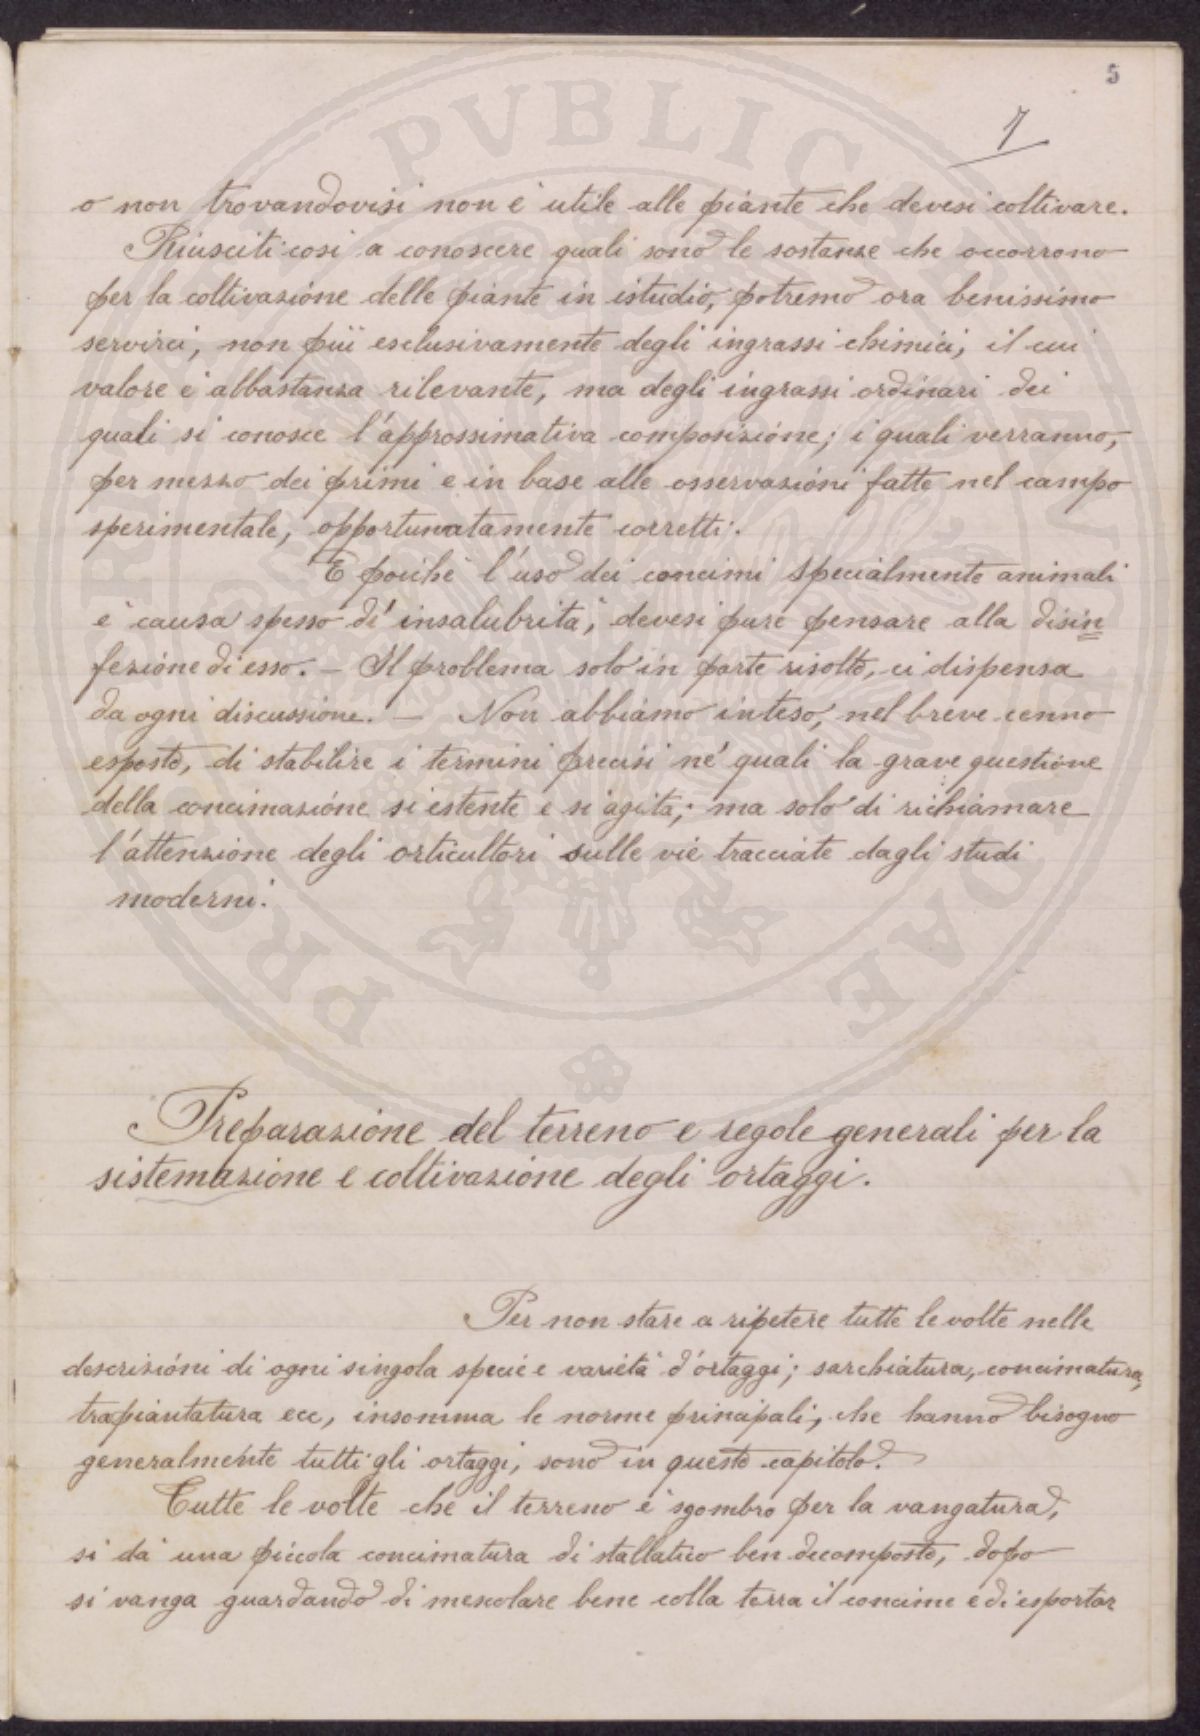 5
7
o non trovandovisi non è utile alle piante che devesi coltivare.
Riusciti così a conoscere quali sono le sostanze che occorrono
per la coltivazione delle piante in istudio, potremo ora benissimo
servirci, non più esclusivamente degli ingrassi chimici, il cui
valore è abbastanza rilevante, ma degli ingrassi ordinari dei
quali si conosce l'approssimativa composizione; i quali verranno,
per mezzo dei primi e in base alle osservazioni fatte nel campo
sperimentale, opportunatamente corretti.
E poichè l'uso dei concimi specialmente animali
è causa spesso di insalubrità, devesi pure pensare alla disin
fezione di esso. — Il problema solo in parte risolto, ci dispensa
da ogni discussione. — Non abbiamo inteso, nel breve cenno
esposto, di stabilire i termini precisi ne' quali la grave questione
della concimazione si estente e si agita; ma solo di richiamare
l'attenzione degli orticultori sulle vie tracciate dagli studi
moderni.
Preparazione del terreno e regole generali per la
sistemazione e coltivazione degli ortaggi.
Per non stare a ripetere tutte le volte nelle
descrizioni di ogni singola specie e varietà d'ortaggi; sarchiatura, concimatura,
trapiantatura ecc, insomma le norme principali, che hanno bisogno
generalmente tutti gli ortaggi, sono in questo capitolo.
Tutte le volte che il terreno è sgombro per la vangatura,
si dà una piccola concimatura di stallatico ben decomposto, dopo
si vanga guardando di mescolare bene colla terra il concime e di esportar
PROPERTY PVBLICAE AE